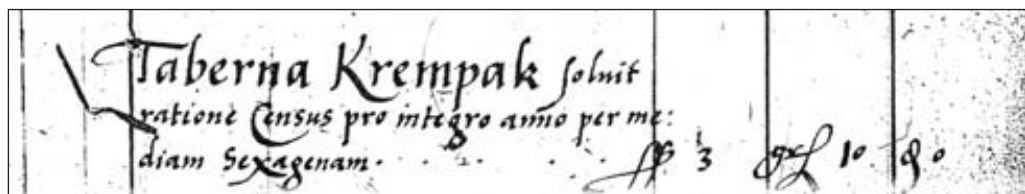 Taberna Krempak soluit
ratione Census pro integro anno per me:
diam Sexagenam. . . . . . . 3 10 0